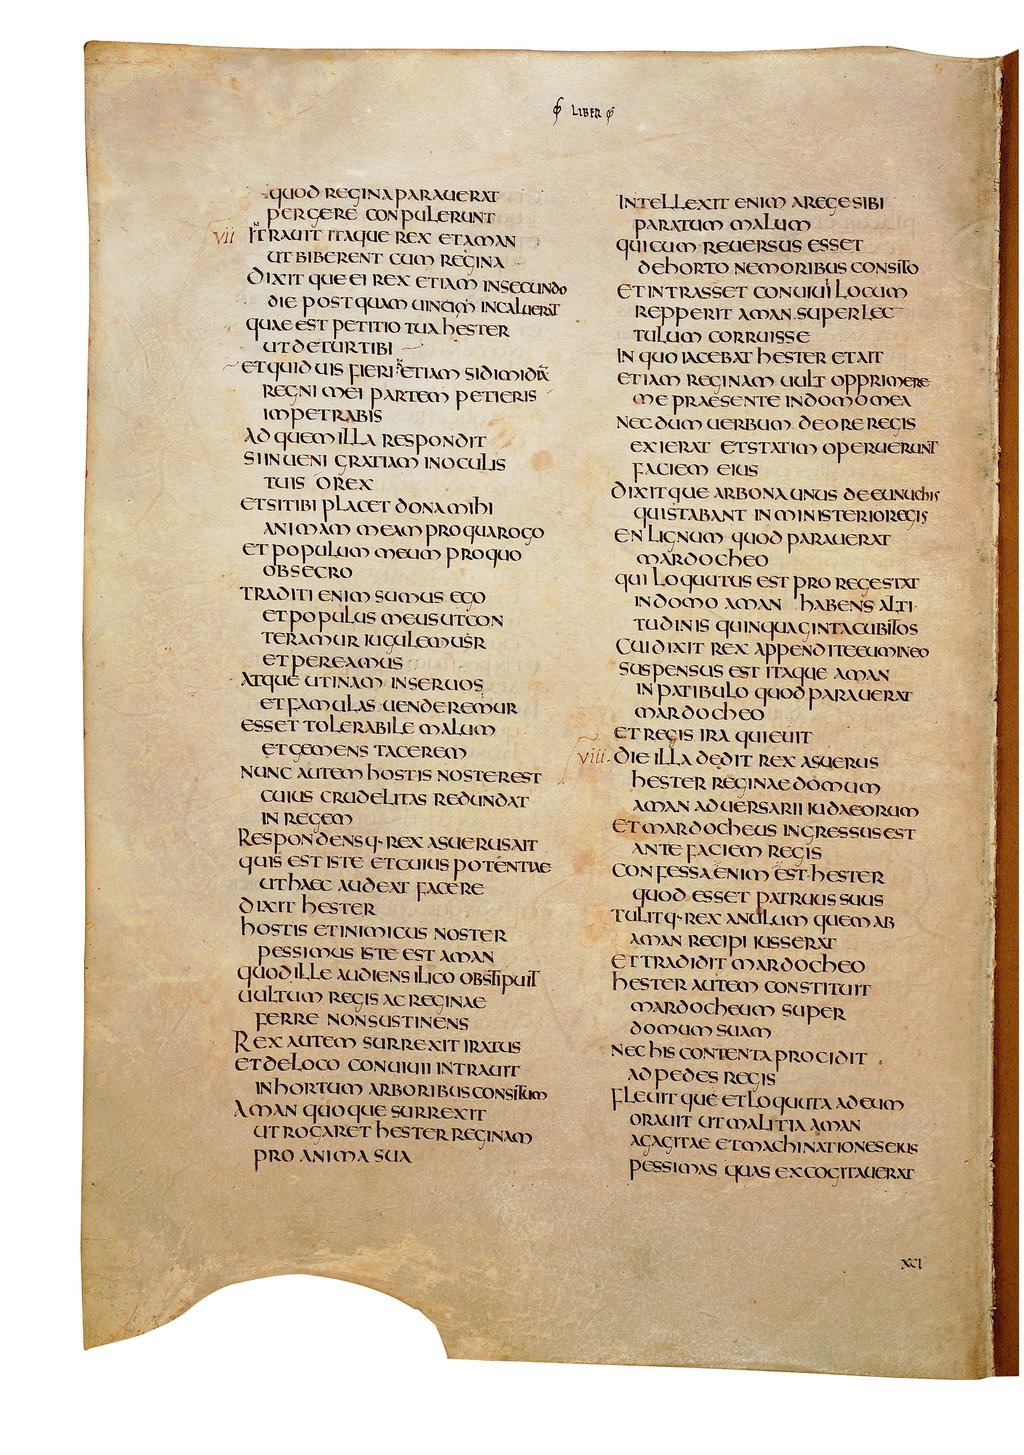 LIBER
QUOD REGINA PARAUERAT
PERGERE CONPULERUNT
VII INTRAUIT ITAQUE REX ET AMAN
UT BIBERENT CUM REGINA
DIXITQUE EI REX ETIAM IN SECUNDO
DIE POSTQUAM UINO INCALUERAT
QUAE EST PETITIO TUA HESTER
UT DETUR TIBI
ET QUID UIS FIERI ETIAM SI DIMIDIĀ
REGNI MEI PARTEM PETIERIS
IMPETRABIS
AD QUEM ILLA RESPONDIT
SI INUENI GRATIAM IN OCULIS
TUIS O REX
ET SI TIBI PLACET DONA MIHI
ANIMAM MEAM PRO QUA ROGO
ET POPULUM MEUM PRO QUO
OBSECRO
TRADITI ENIM SUMUS EGO
ET POPULUS MEUS UT CON
TERAMUR IUGULEMUR
ET PEREAMUS
ATQUE UTINAM IN SERUOS
ET FAMULAS UENDEREMUR
ESSET TOLERABILE MALUM
ET GEMENS TACEREM
NUNC AUTEM HOSTIS NOSTER EST
CUIUS CRUDELITAS REDUNDAT
IN REGEM
RESPONDENSQ· REX ASUERUS AIT
QUIS EST ISTE ET CUIUS POTENTIAE
UT HAEC AUDEAT FACERE
DIXIT HESTER
HOSTIS ET INIMICUS NOSTER
PESSIMUS ISTE EST AMAN
QUOD ILLE AUDIENS ILICO OBSTIPUIT
UULTUM REGIS AC REGINAE
FERRE NON SUSTINENS
REX AUTEM SURREXIT IRATUS
ET DE LOCO CONUIUII INTRAUIT
IN HORTUM ARBORIBUS CONSITUM
AMAN QUOQUE SURREXIT
UT ROGARET HESTER REGINAM
PRO ANIMA SUA
INTELLEXIT ENIM A REGE SIBI
PARATUM MALUM
QUI CUM REUERSUS ESSET
DE HORTO NEMORIBUS CONSITO
ET INTRASSET CONUIUII LOCUM
REPPERIT AMAN SUPER LEC
TULUM CORRUISSE
IN QUO IACEBAT HESTER ET AIT
ETIAM REGINAM UULT OPPRIMERE
ME PRAESENTE IN DOMO MEA
NECDUM UERBUM DE ORE REGIS
EXIERAT ET STATIM OPERUERUNT
FACIEM EIUS
DIXITQUE ARBONA UNUS DE EUNUCHIS
QUI STABANT IN MINISTERIO REGIS
EN LIGNUM QUOD PARAUERAT
MARDOCHEO
QUI LOQUUTUS EST PRO REGE STAT
IN DOMO AMAN HABENS ALTI
TUDINIS QUINQUAGINTA CUBITOS
CUI DIXIT REX APPENDITE EUM IN EO
SUSPENSUS EST ITAQUE AMAN
IN PATIBULO QUOD PARAUERAT
MARDOCHEO
ET REGIS IRA QUIEUIT
VIII DIE ILLA DEDIT REX ASUERUS
HESTER REGINAE DOMUM
AMAN ADUERSARII IUDAEORUM
ET MARDOCHEUS INGRESSUS EST
ANTE FACIEM REGIS
CONFESSA ENIM EST HESTER
QUOD ESSET PATRUUS SUUS
TULITQ· REX ANULUM QUEM AB
AMAN RECIPI IUSSERAT
ET TRADIDIT MARDOCHEO
HESTER AUTEM CONSTITUIT
MARDOCHEUM SUPER
DOMUM SUAM
NEC HIS CONTENTA PROCIDIT
AD PEDES REGIS
FLEUITQUE ET LOQUUTA AD EUM
ORAUIT UT MALITIA AMAN
AGAGITAE ET MACHINATIONES EIUS
PESSIMAS QUAS EXCOGITAUERAT
XCI